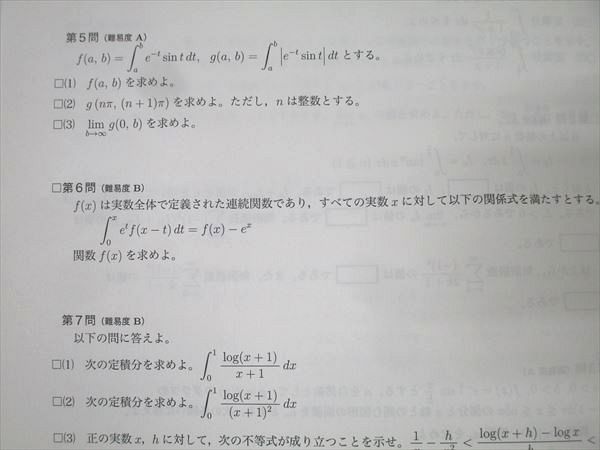 第5問 (難易度 A)
f(a, b) = ∫_a^b e^{-t} sin t dt,  g(a, b) = ∫_a^b |e^{-t} sin t| dt とする。
□(1) f(a, b) を求めよ。
□(2) g(nπ, (n+1)π) を求めよ。ただし，n は整数とする。
□(3) lim_{b→∞} g(0, b) を求めよ。
□第6問 (難易度 B)
f(x) は実数全体で定義された連続関数であり，すべての実数 x に対して以下の関係式を満たすとする。
∫_0^x e^t f(x − t) dt = f(x) − e^x
関数 f(x) を求めよ。
第7問 (難易度 B)
以下の問に答えよ。
□(1) 次の定積分を求めよ。∫_0^1 log(x+1)/(x+1) dx
□(2) 次の定積分を求めよ。∫_0^1 log(x+1)/(x+1)^2 dx
□(3) 正の実数 x, h に対して，次の不等式が成り立つことを示せ。1/x − h/x^2 < log(x+h) − log x / h <